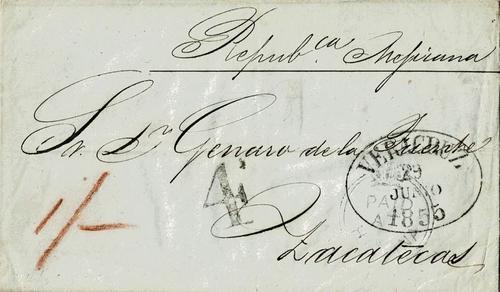 Repub.ca Mejicana
Sr. Dn. Genaro de la Fuente
VERACRUZ
29
JUNIO
1855
PAID
4
1/-
Zacatecas